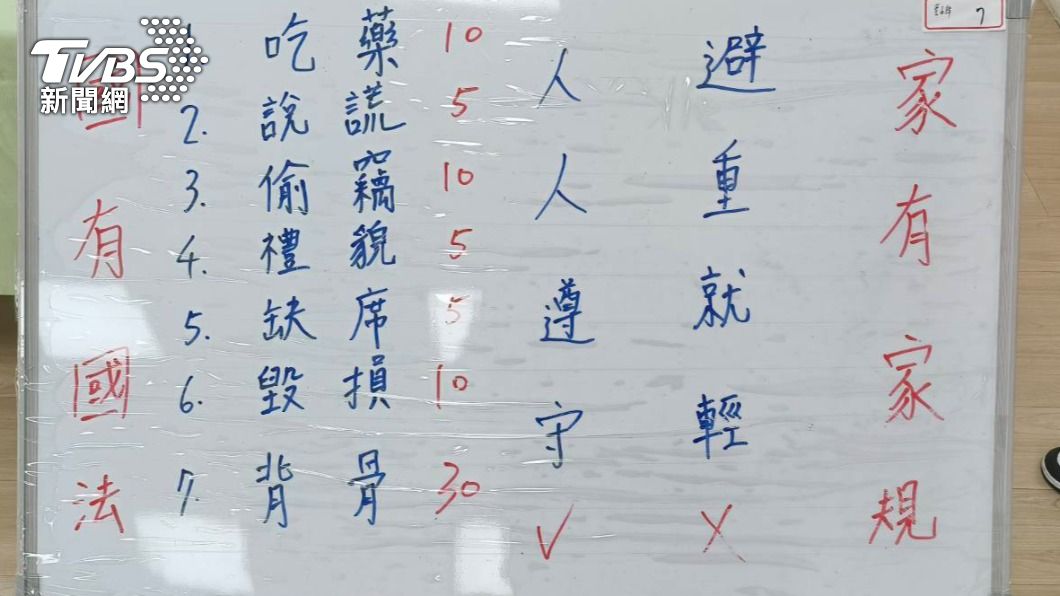 TVBS
新聞網
國有國法
1. 吃藥 10
2. 說謊 5
3. 偷竊 10
4. 禮貌 5
5. 缺席 5
6. 毀損 10
7. 背骨 30
人人遵守 ✓
避重就輕 X
家有家規
7